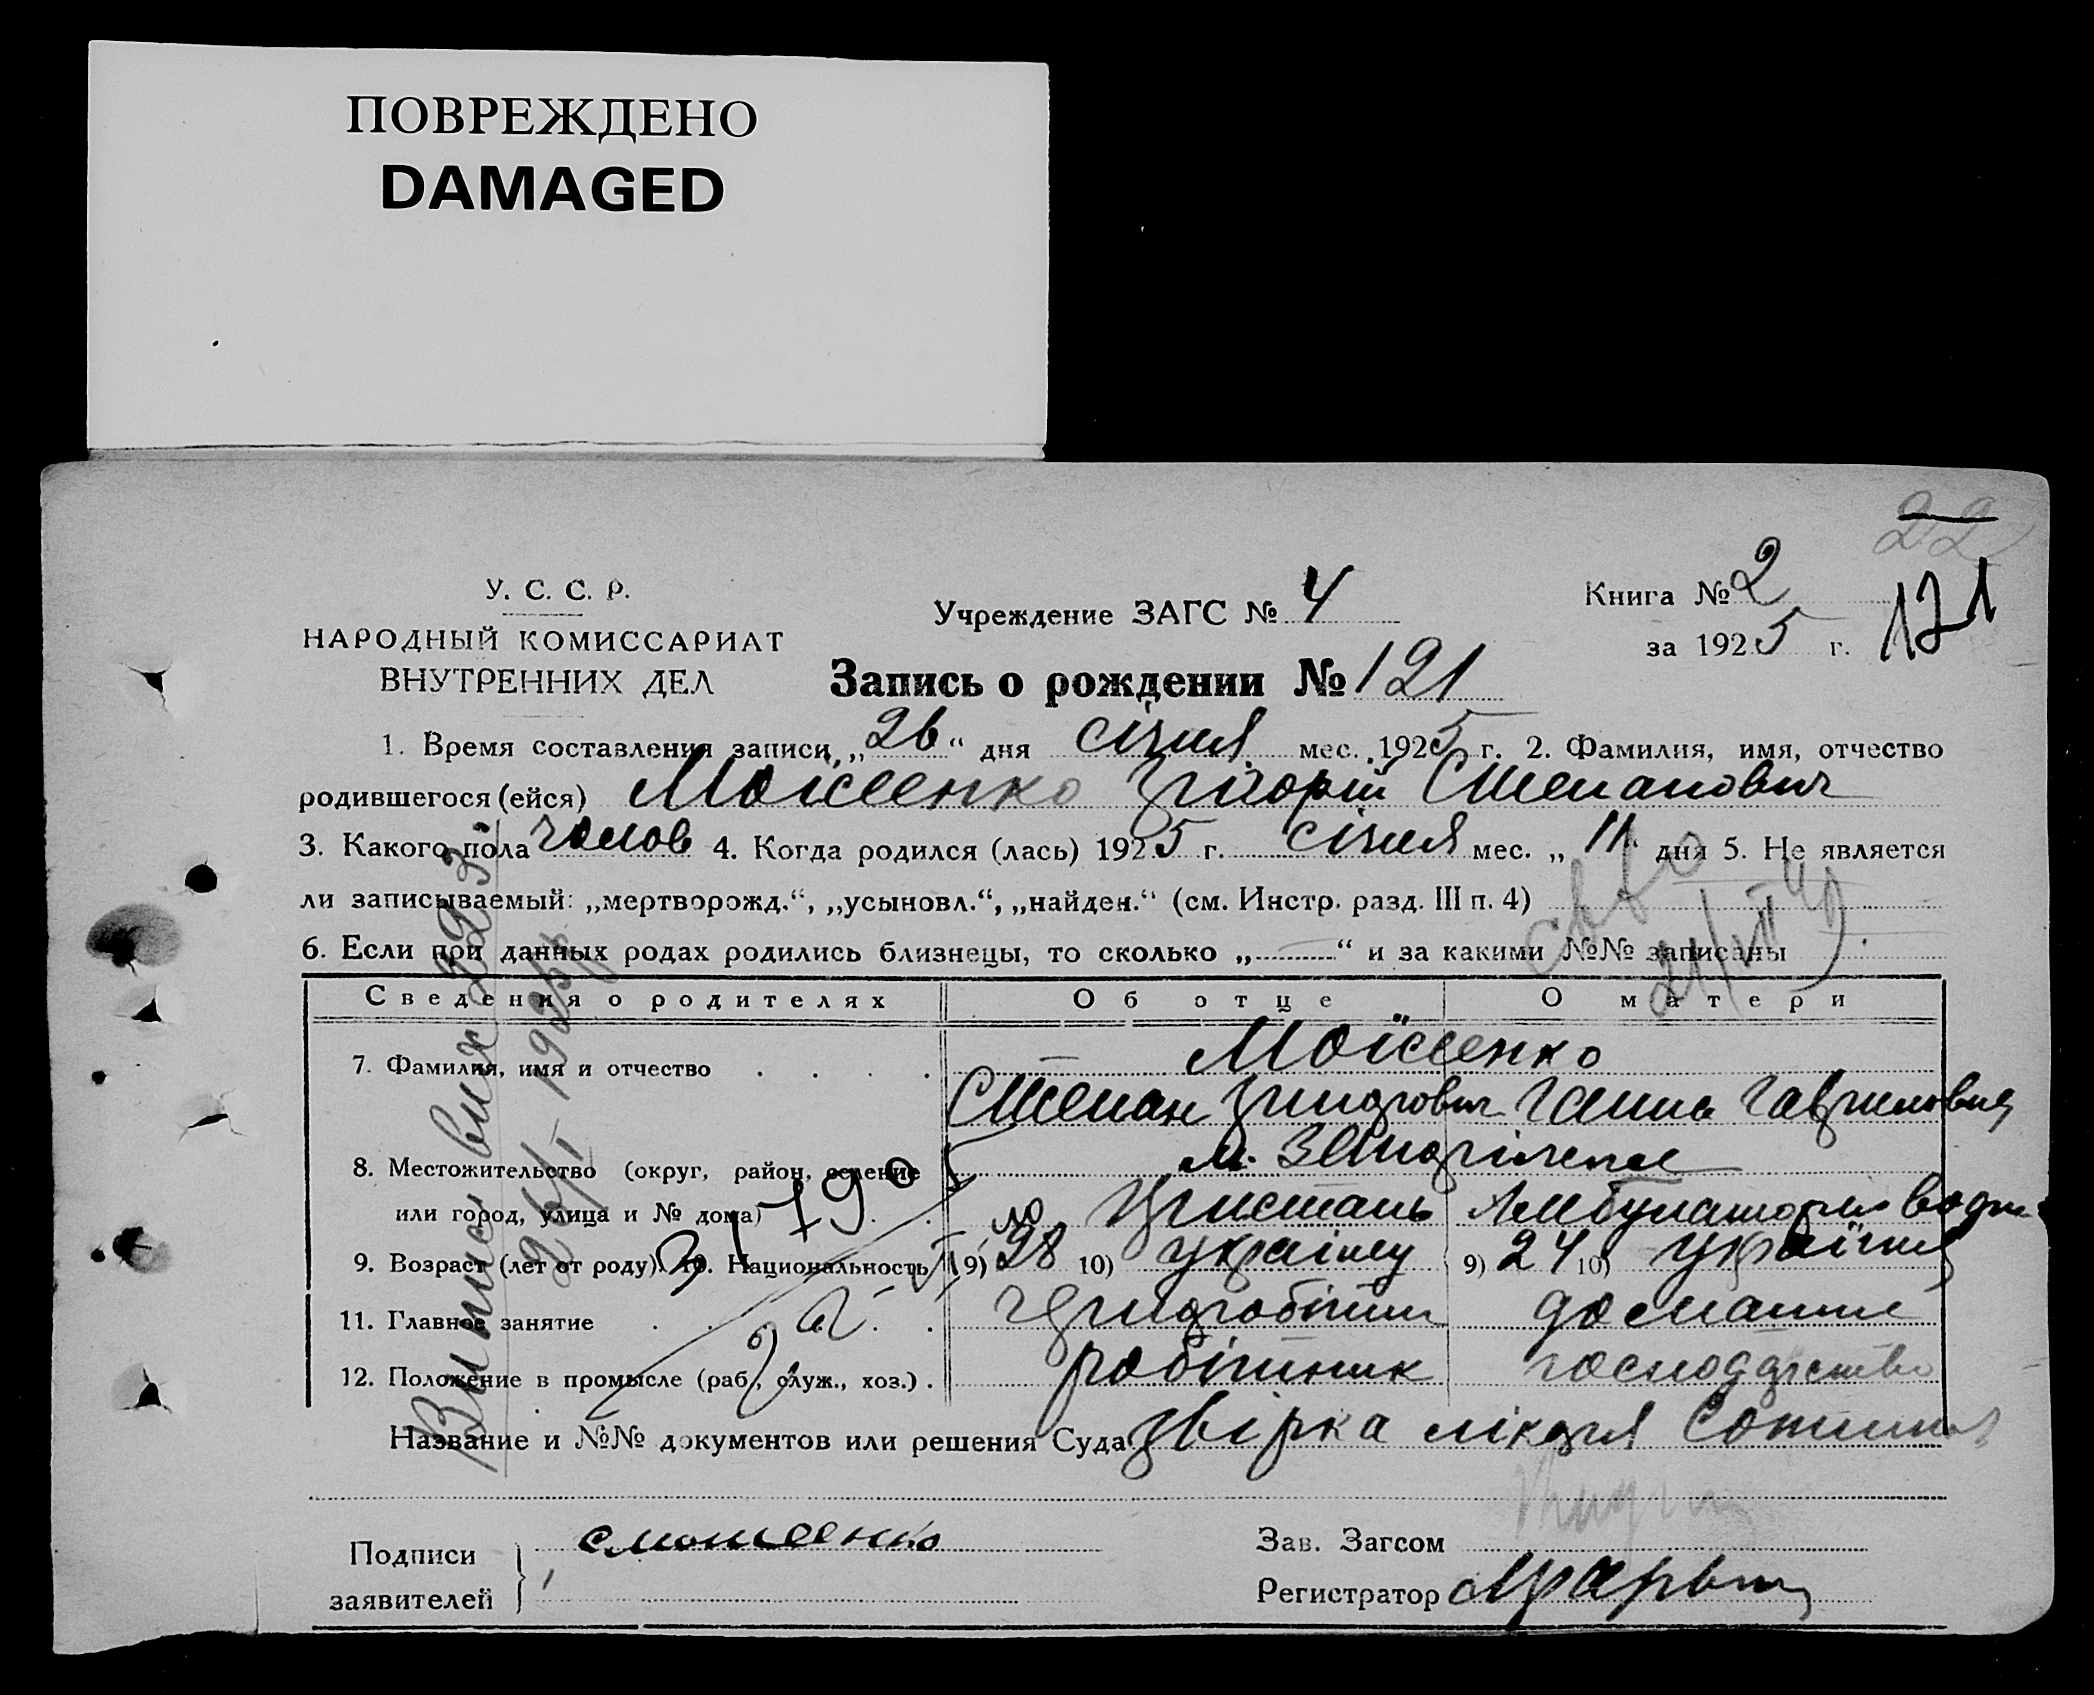 ПОВРЕЖДЕНО
DAMAGED
22
У. С. С. Р.
НАРОДНЫЙ КОМИССАРИАТ
ВНУТРЕННИХ ДЕЛ
Учреждение ЗАГС № 4
Книга № 2
за 1925 г.
121
Запись о рождении № 121
1. Время составления записи „26“ дня січня мес. 1925 г. 2. Фамилия, имя, отчество
родившегося (ейся) Моїсеенко Григорій Степанович
3. Какого пола чолов 4. Когда родился (лась) 1925 г. січня мес. „11 дня 5. Не является
ли записываемый: „мертворожд.“, „усыновл.“, „найден.“ (см. Инстр. разд. III п. 4)
6. Если при данных родах родились близнецы, то сколько „ “ и за какими №№ записаны
Сведения о родителях Об отце О матери
7. Фамилия, имя и отчество Моїсеенко
Степан Григорович Ганна Гавриловна
8. Местожительство (округ, район, селение м. Запоріжжє
или город, улица и № дома) Пристань Амбулаторія водн
9. Возраст (лет от роду). 10. Национальность 9) 28 10) українец 9) 24 10) українка
11. Главное занятие чорноробочий домашнє
12. Положение в промысле (раб., служ., хоз.) робітник господарство
Название и №№ документов или решения Суда звірка лікаря
Подписи
заявителей
смоисеенко
Зав. Загсом
Регистратор